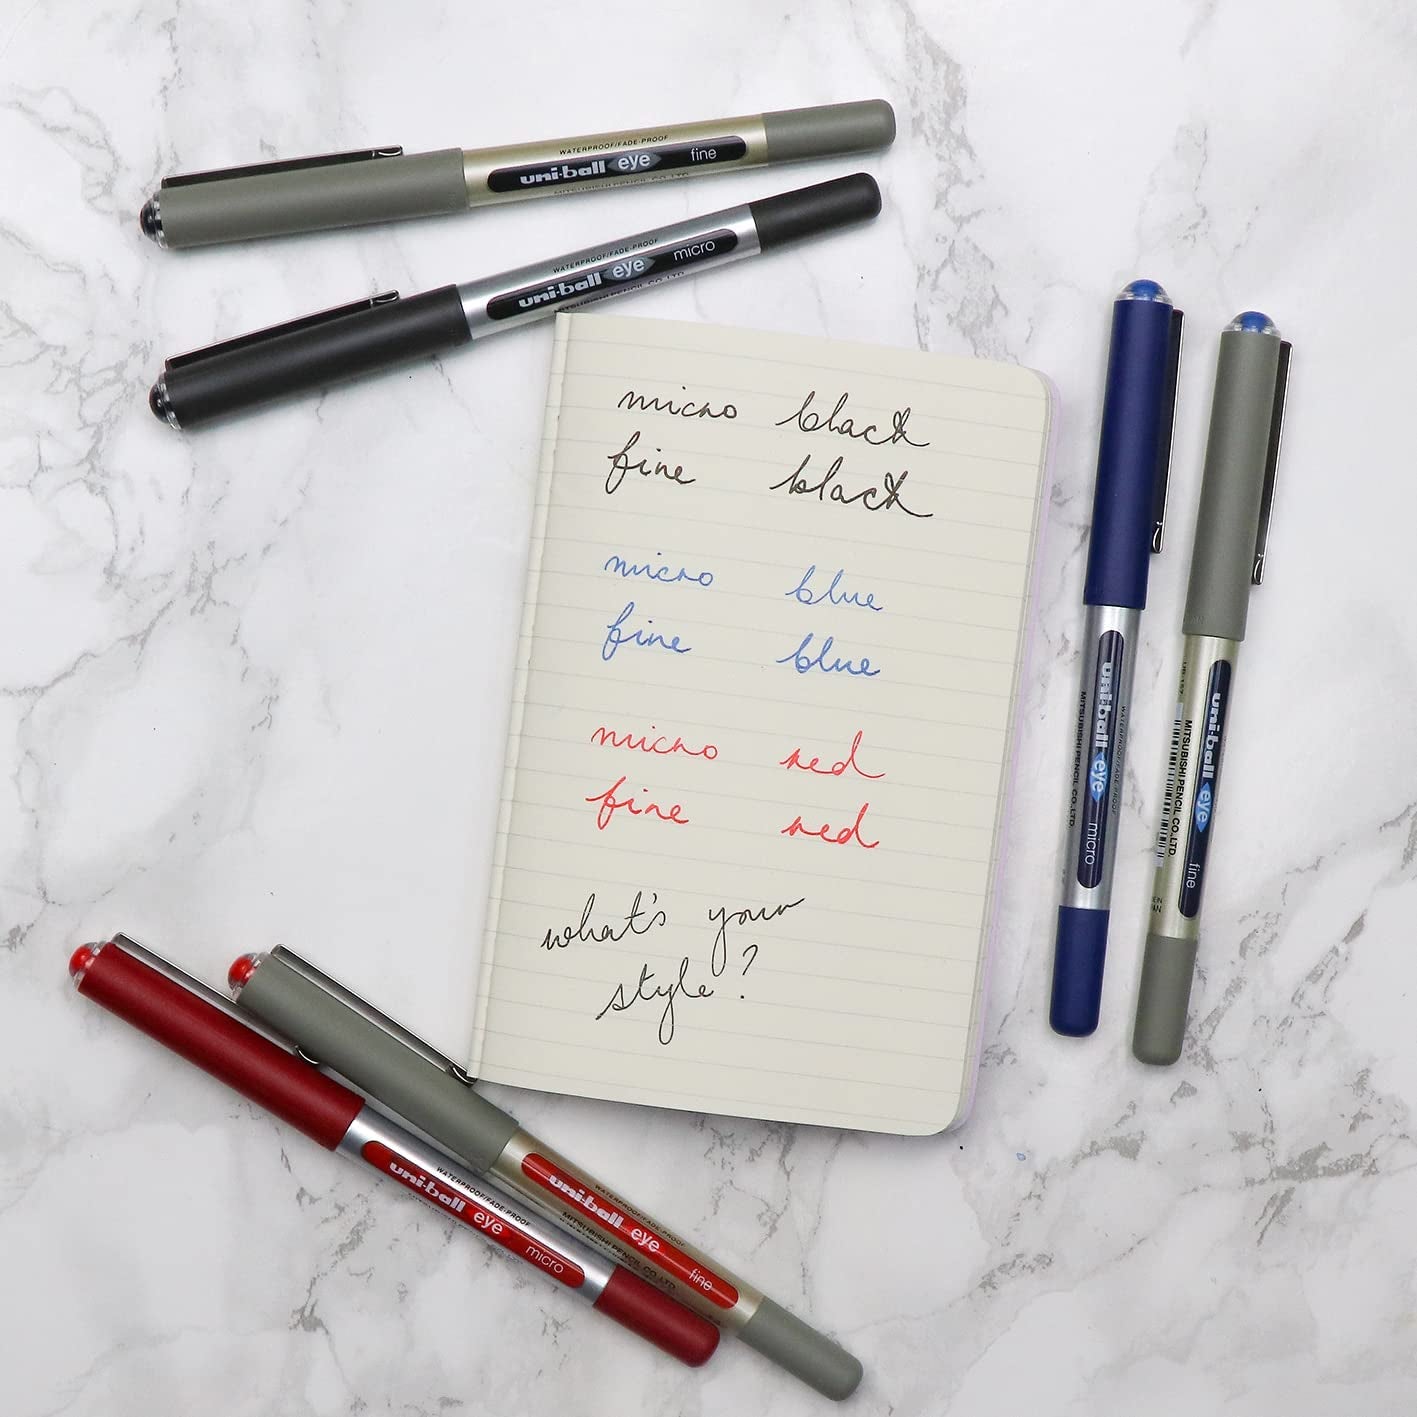 WATERPROOF/FADE-PROOF
uni-ball eye fine
WATERPROOF/FADE-PROOF
uni-ball eye micro
MITSUBISHI PENCIL CO., LTD.
micro black
fine black
micro blue
fine blue
micro red
fine red
what's your
style?
WATERPROOF/FADE-PROOF
uni-ball eye micro
MITSUBISHI PENCIL CO., LTD.
uni-ball eye fine
MITSUBISHI PENCIL CO., LTD.
UB-157
WATERPROOF/FADE-PROOF
uni-ball eye micro
WATERPROOF/FADE-PROOF
uni-ball eye fine
MITSUBISHI PENCIL CO., LTD.